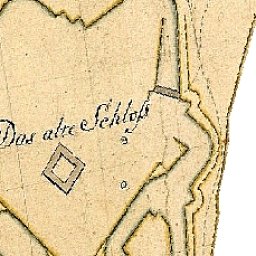 Das alte Schloß